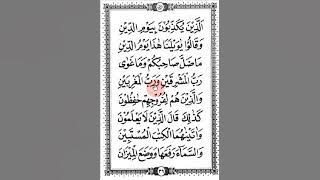 الَّذِينَ يُكَذِّبُونَ بِيَوْمِ الدِّينِ
وَقَالُوا يٰوَيْلَنَا هٰذَا يَوْمُ الدِّينِ
مَا ضَلَّ صَاحِبُكُمْ وَمَا غَوٰى
رَبُّ الْمَشْرِقَيْنِ وَرَبُّ الْمَغْرِبَيْنِ
وَالَّذِينَ هُمْ لِفُرُوجِهِمْ حٰفِظُونَ
كَذٰلِكَ قَالَ الَّذِينَ لَا يَعْلَمُونَ
وَاٰتَيْنٰهُمَا الْكِتٰبَ الْمُسْتَبِينَ
وَالسَّمَآءَ رَفَعَهَا وَوَضَعَ الْمِيزَانَ